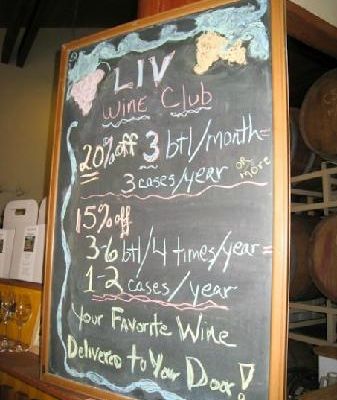 LIV
Wine Club
20% off 3 btl/month=
3 cases/year or more
15% off
3-6 btl/4 times/year=
1-2 cases/year
Your Favorite Wine
Delivered to Your Door!